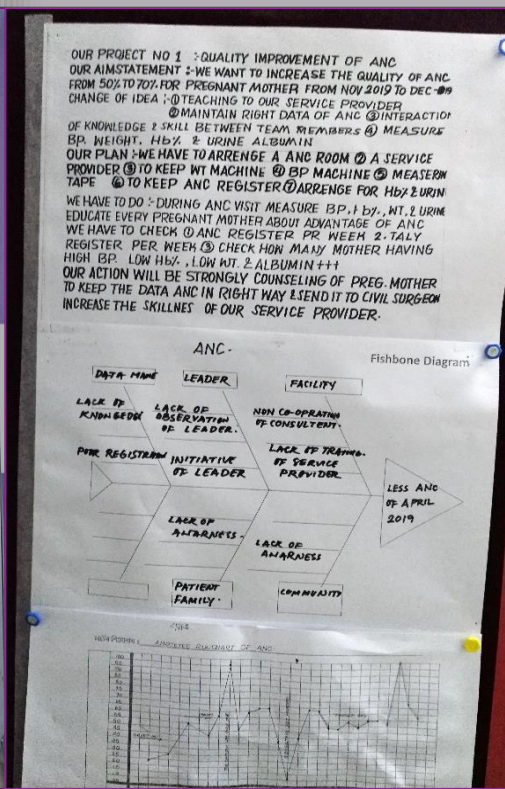 OUR PROJECT NO 1 :-QUALITY IMPROVEMENT OF ANC
OUR AIMSTATEMENT :-WE WANT TO INCREASE THE QUALITY OF ANC
FROM 50% TO 70% FOR PREGNANT MOTHER FROM NOV 2019 TO DEC
CHANGE OF IDEA :-① TEACHING TO OUR SERVICE PROVIDER
② MAINTAIN RIGHT DATA OF ANC ③ INTERACTION
OF KNOWLEDGE & SKILL BETWEEN TEAM MEMBERS ④ MEASURE
BP. WEIGHT. Hb% & URINE ALBUMIN
OUR PLAN :-WE HAVE TO ARRENGE A ANC ROOM ② A SERVICE
PROVIDER ③ TO KEEP WT MACHINE ④ BP MACHINE ⑤ MEASERIN
TAPE ⑥ TO KEEP ANC REGISTER ⑦ ARRENGE FOR Hb% & URIN
WE HAVE TO DO :-DURING ANC VISIT MEASURE BP. Hb%, WT. & URINE
EDUCATE EVERY PREGNANT MOTHER ABOUT ADVANTAGE OF ANC
WE HAVE TO CHECK ① ANC REGISTER PR WEEK 2. TALY
REGISTER PER WEEK ③ CHECK HOW MANY MOTHER HAVING
HIGH BP. LOW Hb%, LOW WT. & ALBUMIN +++
OUR ACTION WILL BE STRONGLY COUNSELING OF PREG. MOTHER
TO KEEP THE DATA ANC IN RIGHT WAY & SEND IT TO CIVIL SURGEON
INCREASE THE SKILLNES OF OUR SERVICE PROVIDER.
ANC.
Fishbone Diagram
DATA MANE
LEADER
FACILITY
LACK OF
KNONGEDGE
LACK OF
OBSERVATION
OF LEADER.
NON CO-OPRATION
OF CONSULTENT.
POOR REGISTRAION
INITIATIVE
OF LEADER
LACK OF TRAING.
OF SERVICE
PROVIDER
LESS ANC
OF APRIL
2019
LACK OF
AWARNESS.
LACK OF
AWARNESS
PATIENT
FAMILY.
COMMUNITY
RUNCHART OF ANC